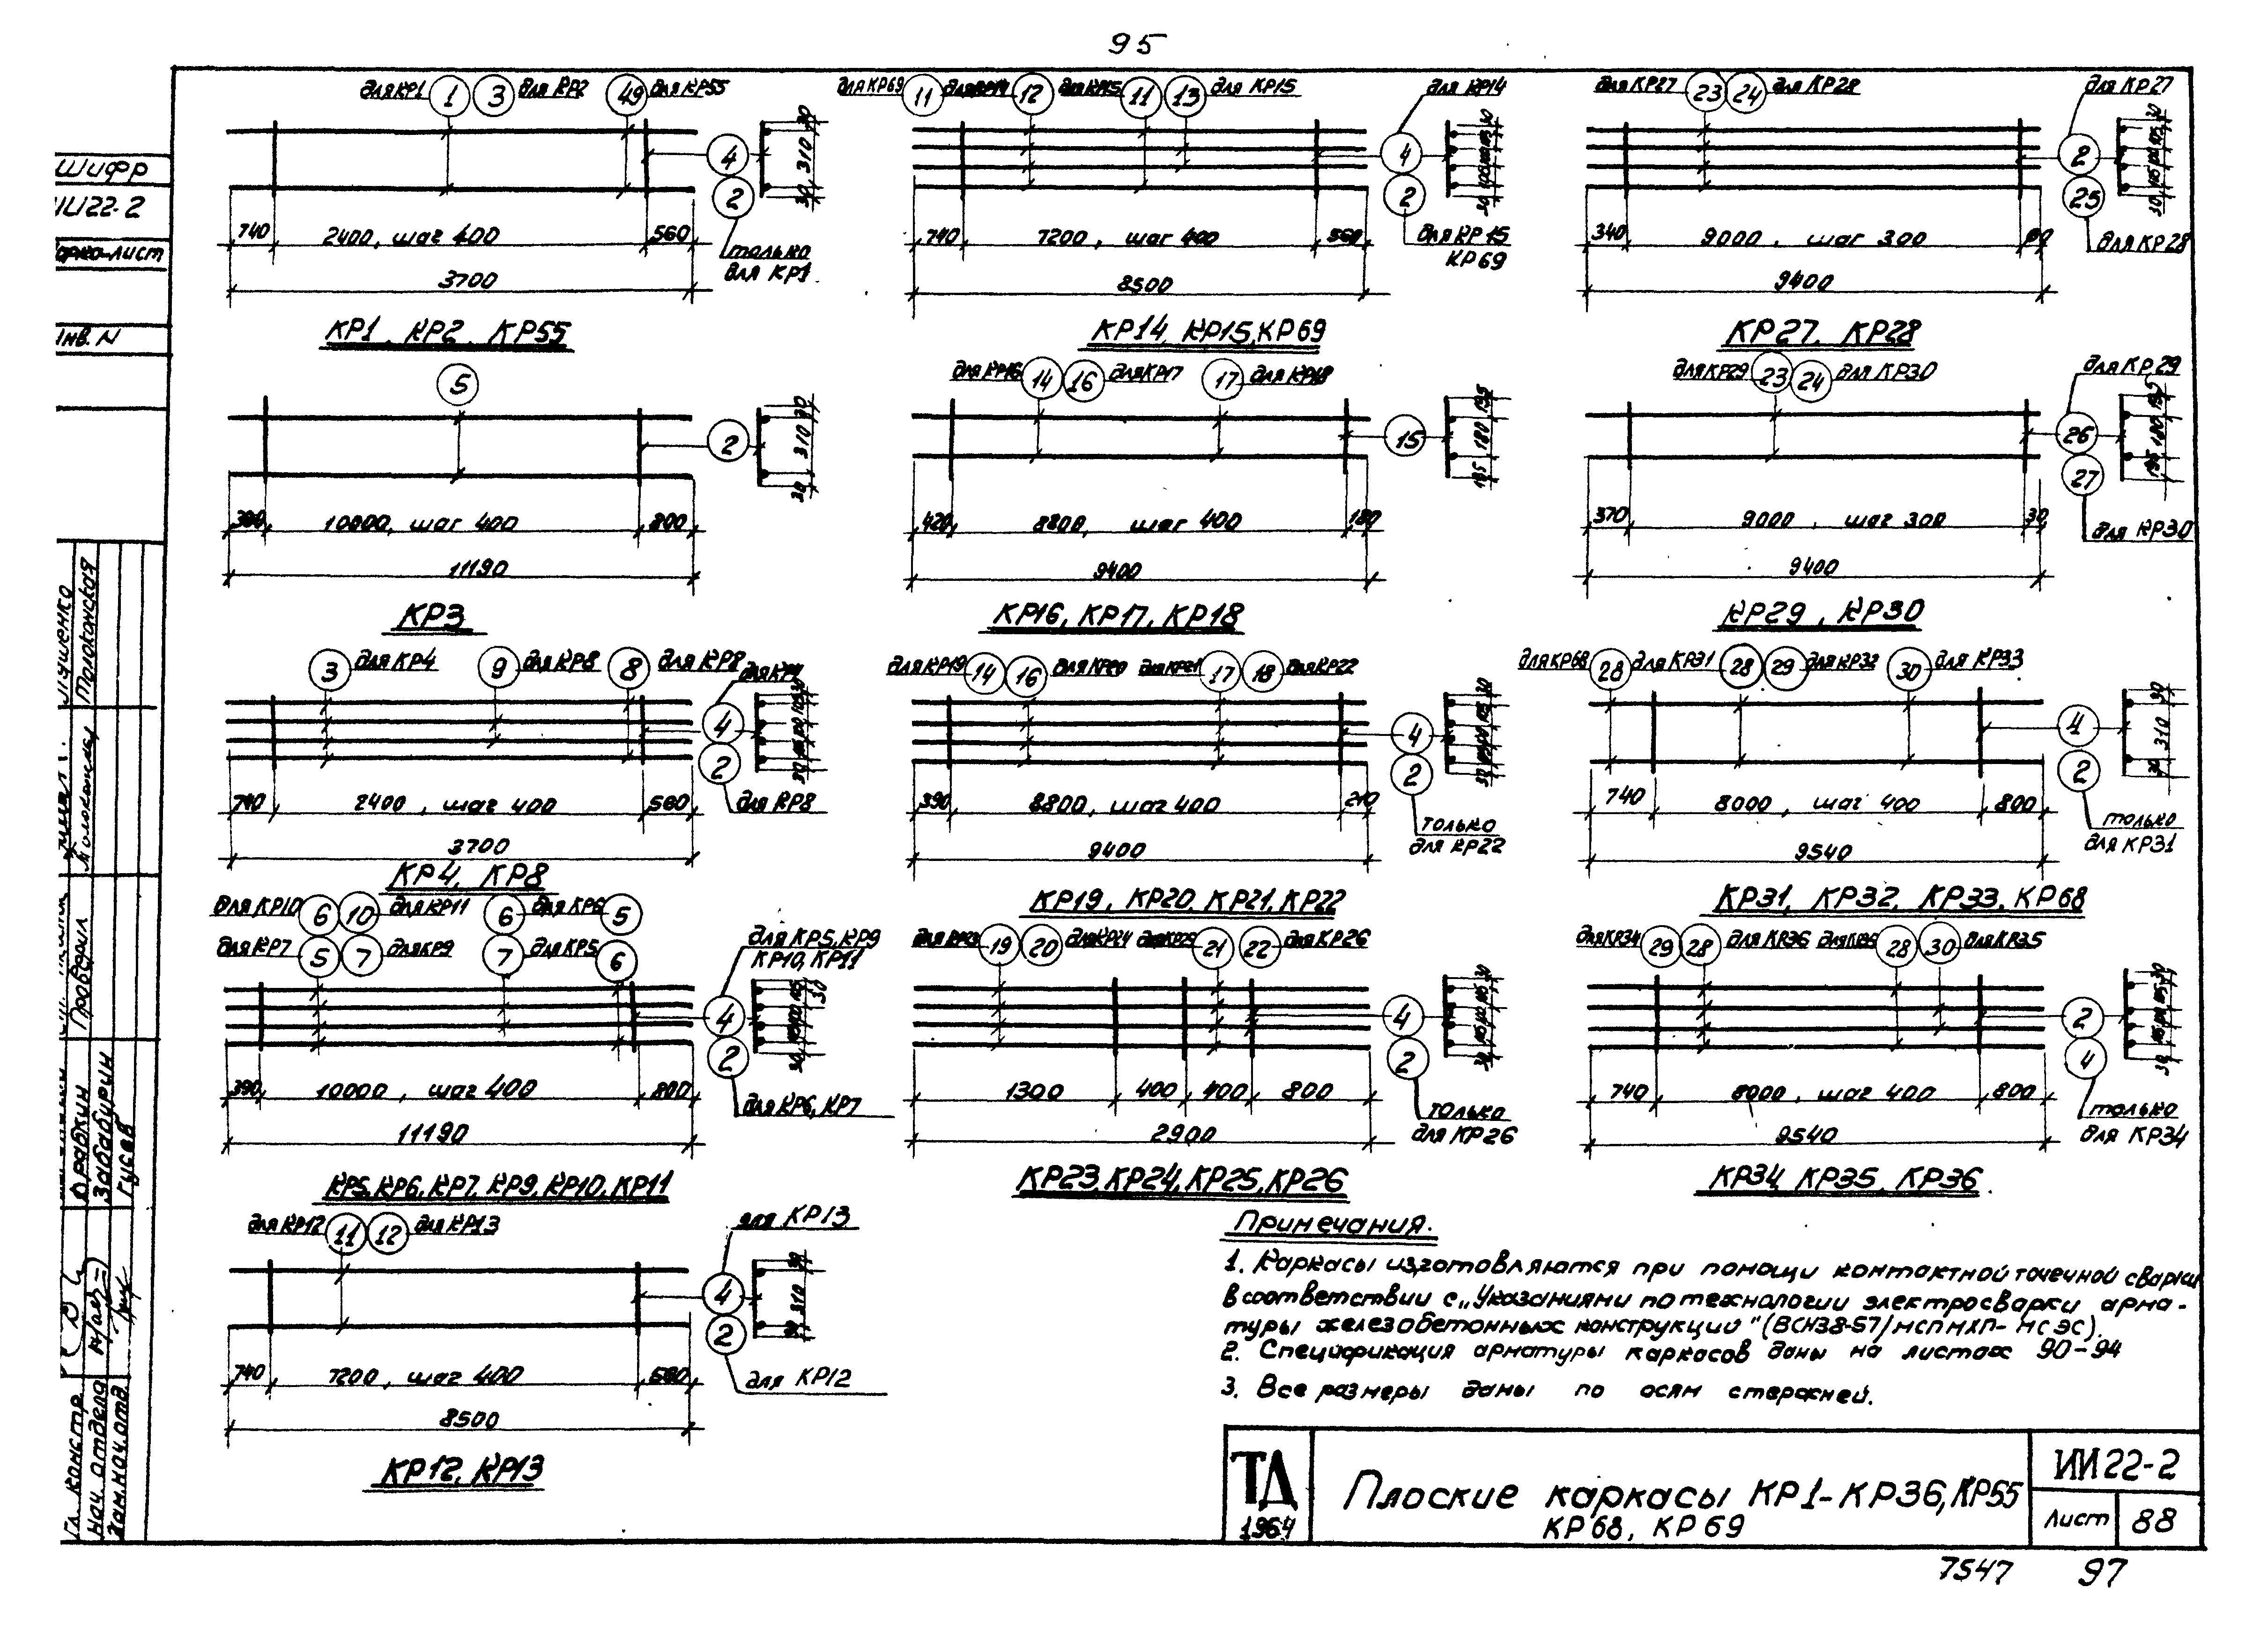 95
Шифр
ИИ22-2
Марка-лист
Инв. N
для КР1 1 3 для КР2 49 для КР55
4
2
30 310 30
740 2400, шаг 400 560
только
для КР1
3700
КР1, КР2, КР55
5
2
30 310 30
390 10000, шаг 400 800
11190
КР3
3 для КР4 9 для КР8 8 для КР8 для КР4
4
2
740 2400, шаг 400 560
для КР8
3700
КР4, КР8
для КР10 6 10 для КР11 6 для КР6 5
для КР7 5 7 для КР9 7 для КР5 6
для КР5, КР9
КР10, КР11
4
2
390 10000, шаг 400 800
для КР6, КР7
11190
КР5, КР6, КР7, КР9, КР10, КР11
для КР12 11 12 для КР13
для КР13
4
2
30 310 30
740 7200, шаг 400 560
для КР12
8500
КР12, КР13
для КР69 11 для КР14 12 для КР15 11 13 для КР15
для КР14
4
2
740 7200, шаг 400 560
для КР15
КР69
8500
КР14, КР15, КР69
для КР16 14 16 для КР17 17 для КР18
15
195 180 195
420 8800, шаг 400 180
9400
КР16, КР17, КР18
для КР19 14 16 для КР20 для КР21 17 18 для КР22
4
2
390 8800, шаг 400 210
только
для КР22
9400
КР19, КР20, КР21, КР22
для КР23 19 20 для КР24 для КР25 21 22 для КР26
4
2
1300 400 400 800
только
для КР26
2900
КР23, КР24, КР25, КР26
для КР27 23 24 для КР28
для КР27
2
25
340 9000, шаг 300 60
для КР28
9400
КР27, КР28
для КР29 23 24 для КР30
для КР29
26
27
195 180 195
370 9000, шаг 300 30
для КР30
9400
КР29, КР30
для КР68 28 для КР31 28 29 для КР32 30 для КР33
4
2
30 310 30
740 8000, шаг 400 800
только
для КР31
9540
КР31, КР32, КР33, КР68
для КР34 29 28 для КР36 для КР35 28 30 для КР35
2
4
740 8000, шаг 400 800
только
для КР34
9540
КР34, КР35, КР36
Примечания.
1. Каркасы изготовляются при помощи контактной точечной сварки
в соответствии с „Указаниями по технологии электросварки арма-
туры железобетонных конструкций" (ВСН38-57/МСПМХП-МСЭС).
2. Спецификация арматуры каркасов даны на листах 90-94
3. Все размеры даны по осям стержней.
ТД
1964
Плоские каркасы КР1-КР36, КР55
КР68, КР69
ИИ22-2
Лист 88
7547 97
Гл. констр.
Нач. отдела
Зам.нач.отд.
Драбкин
Забабурин
Гусев
Проверил